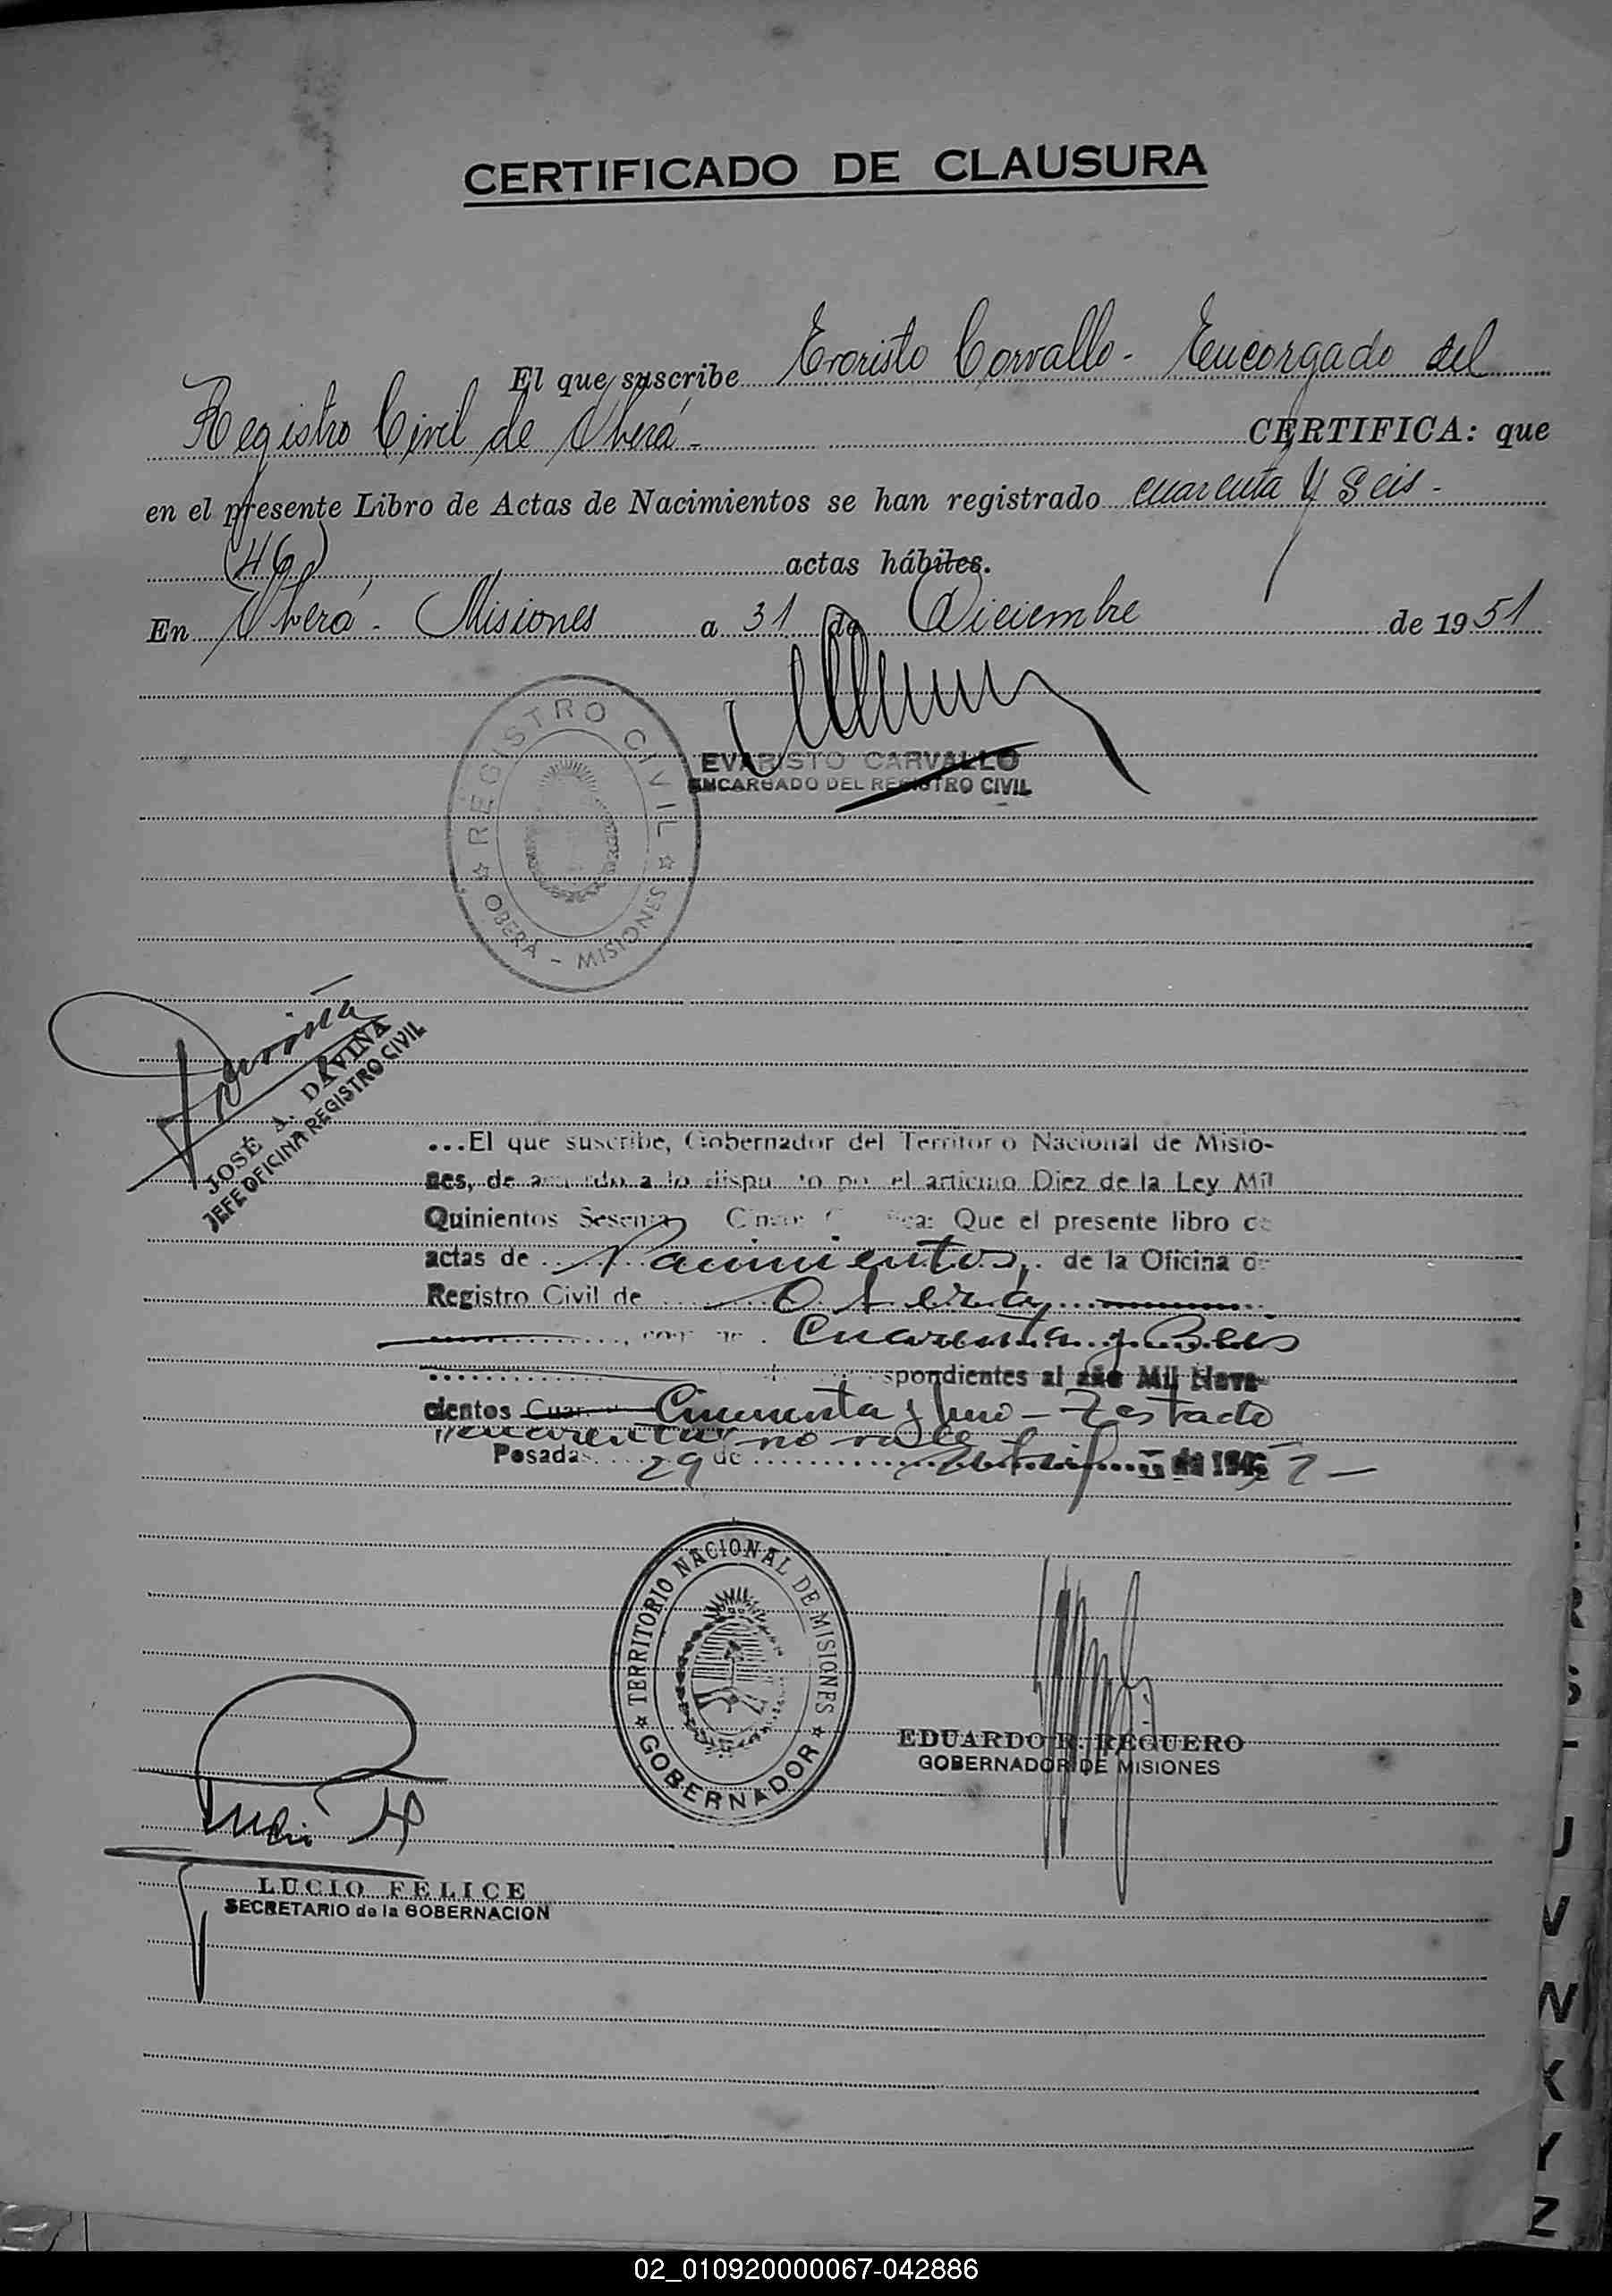 CERTIFICADO DE CLAUSURA
El que suscribe Evaristo Carvallo - Encargado del
Registro Civil de Oberá - CERTIFICA: que
en el presente Libro de Actas de Nacimientos se han registrado cuarenta y seis -
(46) actas hábiles.
En Oberá - Misiones a 31 de Diciembre de 1951
EVARISTO CARVALLO
ENCARGADO DEL REGISTRO CIVIL
REGISTRO CIVIL
OBERÁ - MISIONES
Daviña
JOSÉ A. DAVIÑA
JEFE OFICINA REGISTRO CIVIL
...El que suscribe, Gobernador del Territorio Nacional de Misio-
nes, de acuerdo a lo dispuesto por el artículo Diez de la Ley Mil
Quinientos Sesenta y Cinco Certifica: Que el presente libro de
actas de Nacimientos, de la Oficina de
Registro Civil de Oberá
Cuarenta y Seis
spondientes al año Mil Nove-
cientos Cuar Cincuenta y Uno - Testado
"cuarenta" no vale
Posadas 29 de de 1952 -
TERRITORIO NACIONAL DE MISIONES
GOBERNADOR
EDUARDO R. REGUERO
GOBERNADOR DE MISIONES
LUCIO FELICE
SECRETARIO de la GOBERNACION
U
V
W
X
Y
Z
02_010920000067-042886